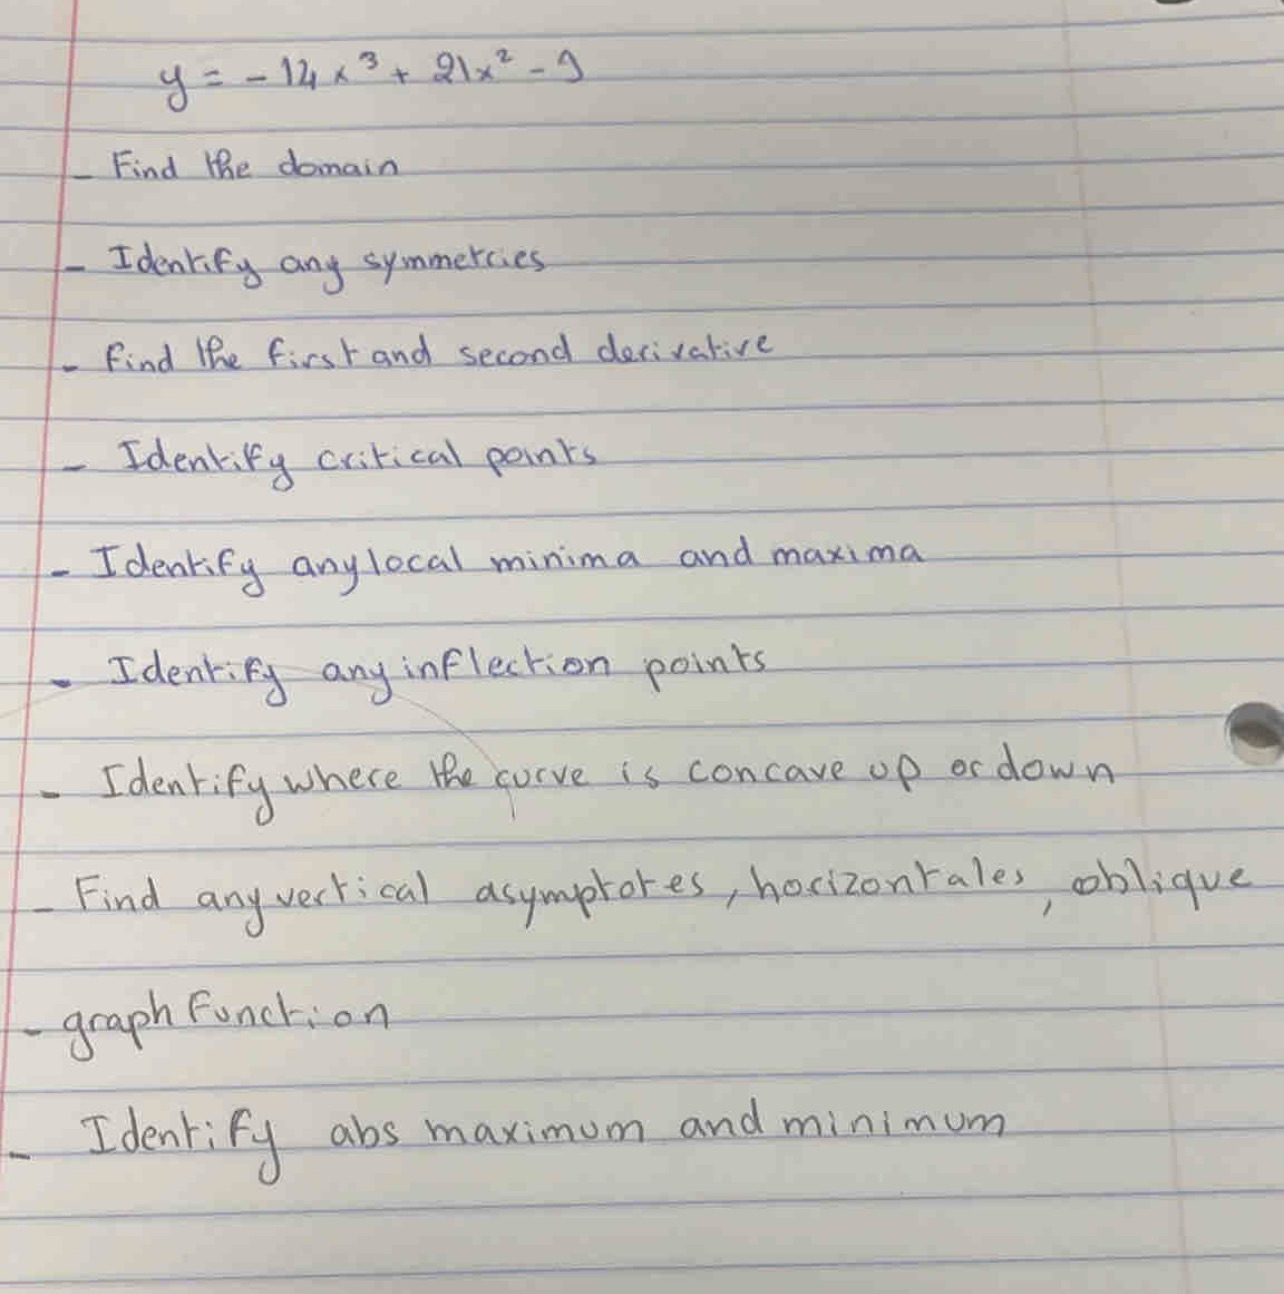 y = -14x³ + 21x² - 9
- Find the domain
- Identify any symmetries
- find the first and second derivative
- Identify critical points
- Identify any local minima and maxima
- Identify any inflection points
- Identify where the curve is concave up or down
- Find any vertical asymptotes, horizontales, oblique
- graph function
- Identify abs maximum and minimum